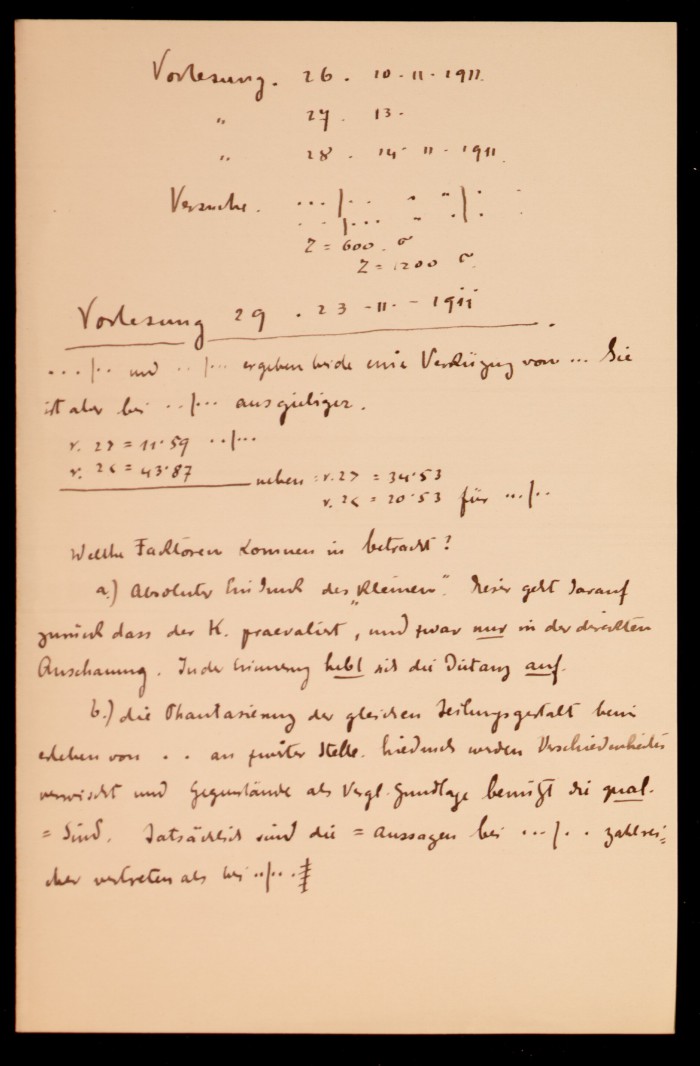 Vorlesung. 26. 10-11-1911.
" 27. 13.
" 28. 14 11-1911.
Versuche. ...|.. " "|:
..|... " .|:
Z = 600 σ
Z = 1200 σ
Vorlesung 29. 23-11--1911.
...|.. und ..|... ergeben beide eine Verkürzung von ... Sie
ist aber bei ..|... ausgiebiger.
r. 27 = 11·59 ..|...
r. 26 = 43·87
neben: r. 27 = 34·53
r. 26 = 20·53 für ...|..
Welche Facktoren kommen in betracht?
a.) Absoluter Eindruck des "Kleinen". Dieser geht darauf
zurück dass der K. praevaliert, und zwar nur in der direckten
Anschauung. In der Erinnerung hebt sich die Distanz auf.
b.) die Phantasierung der gleichen Teilungsgestalt beim
erleben von .. an zweiter Stelle. hiedurch werden Verschiedenheiten
verwischt und Gegenstände als Vergl. Grundlage benützt die qual.
= Sind. Tatsächlich sind die = Aussagen bei ...|.. zahlrei=
cher vertreten als bei ..|...